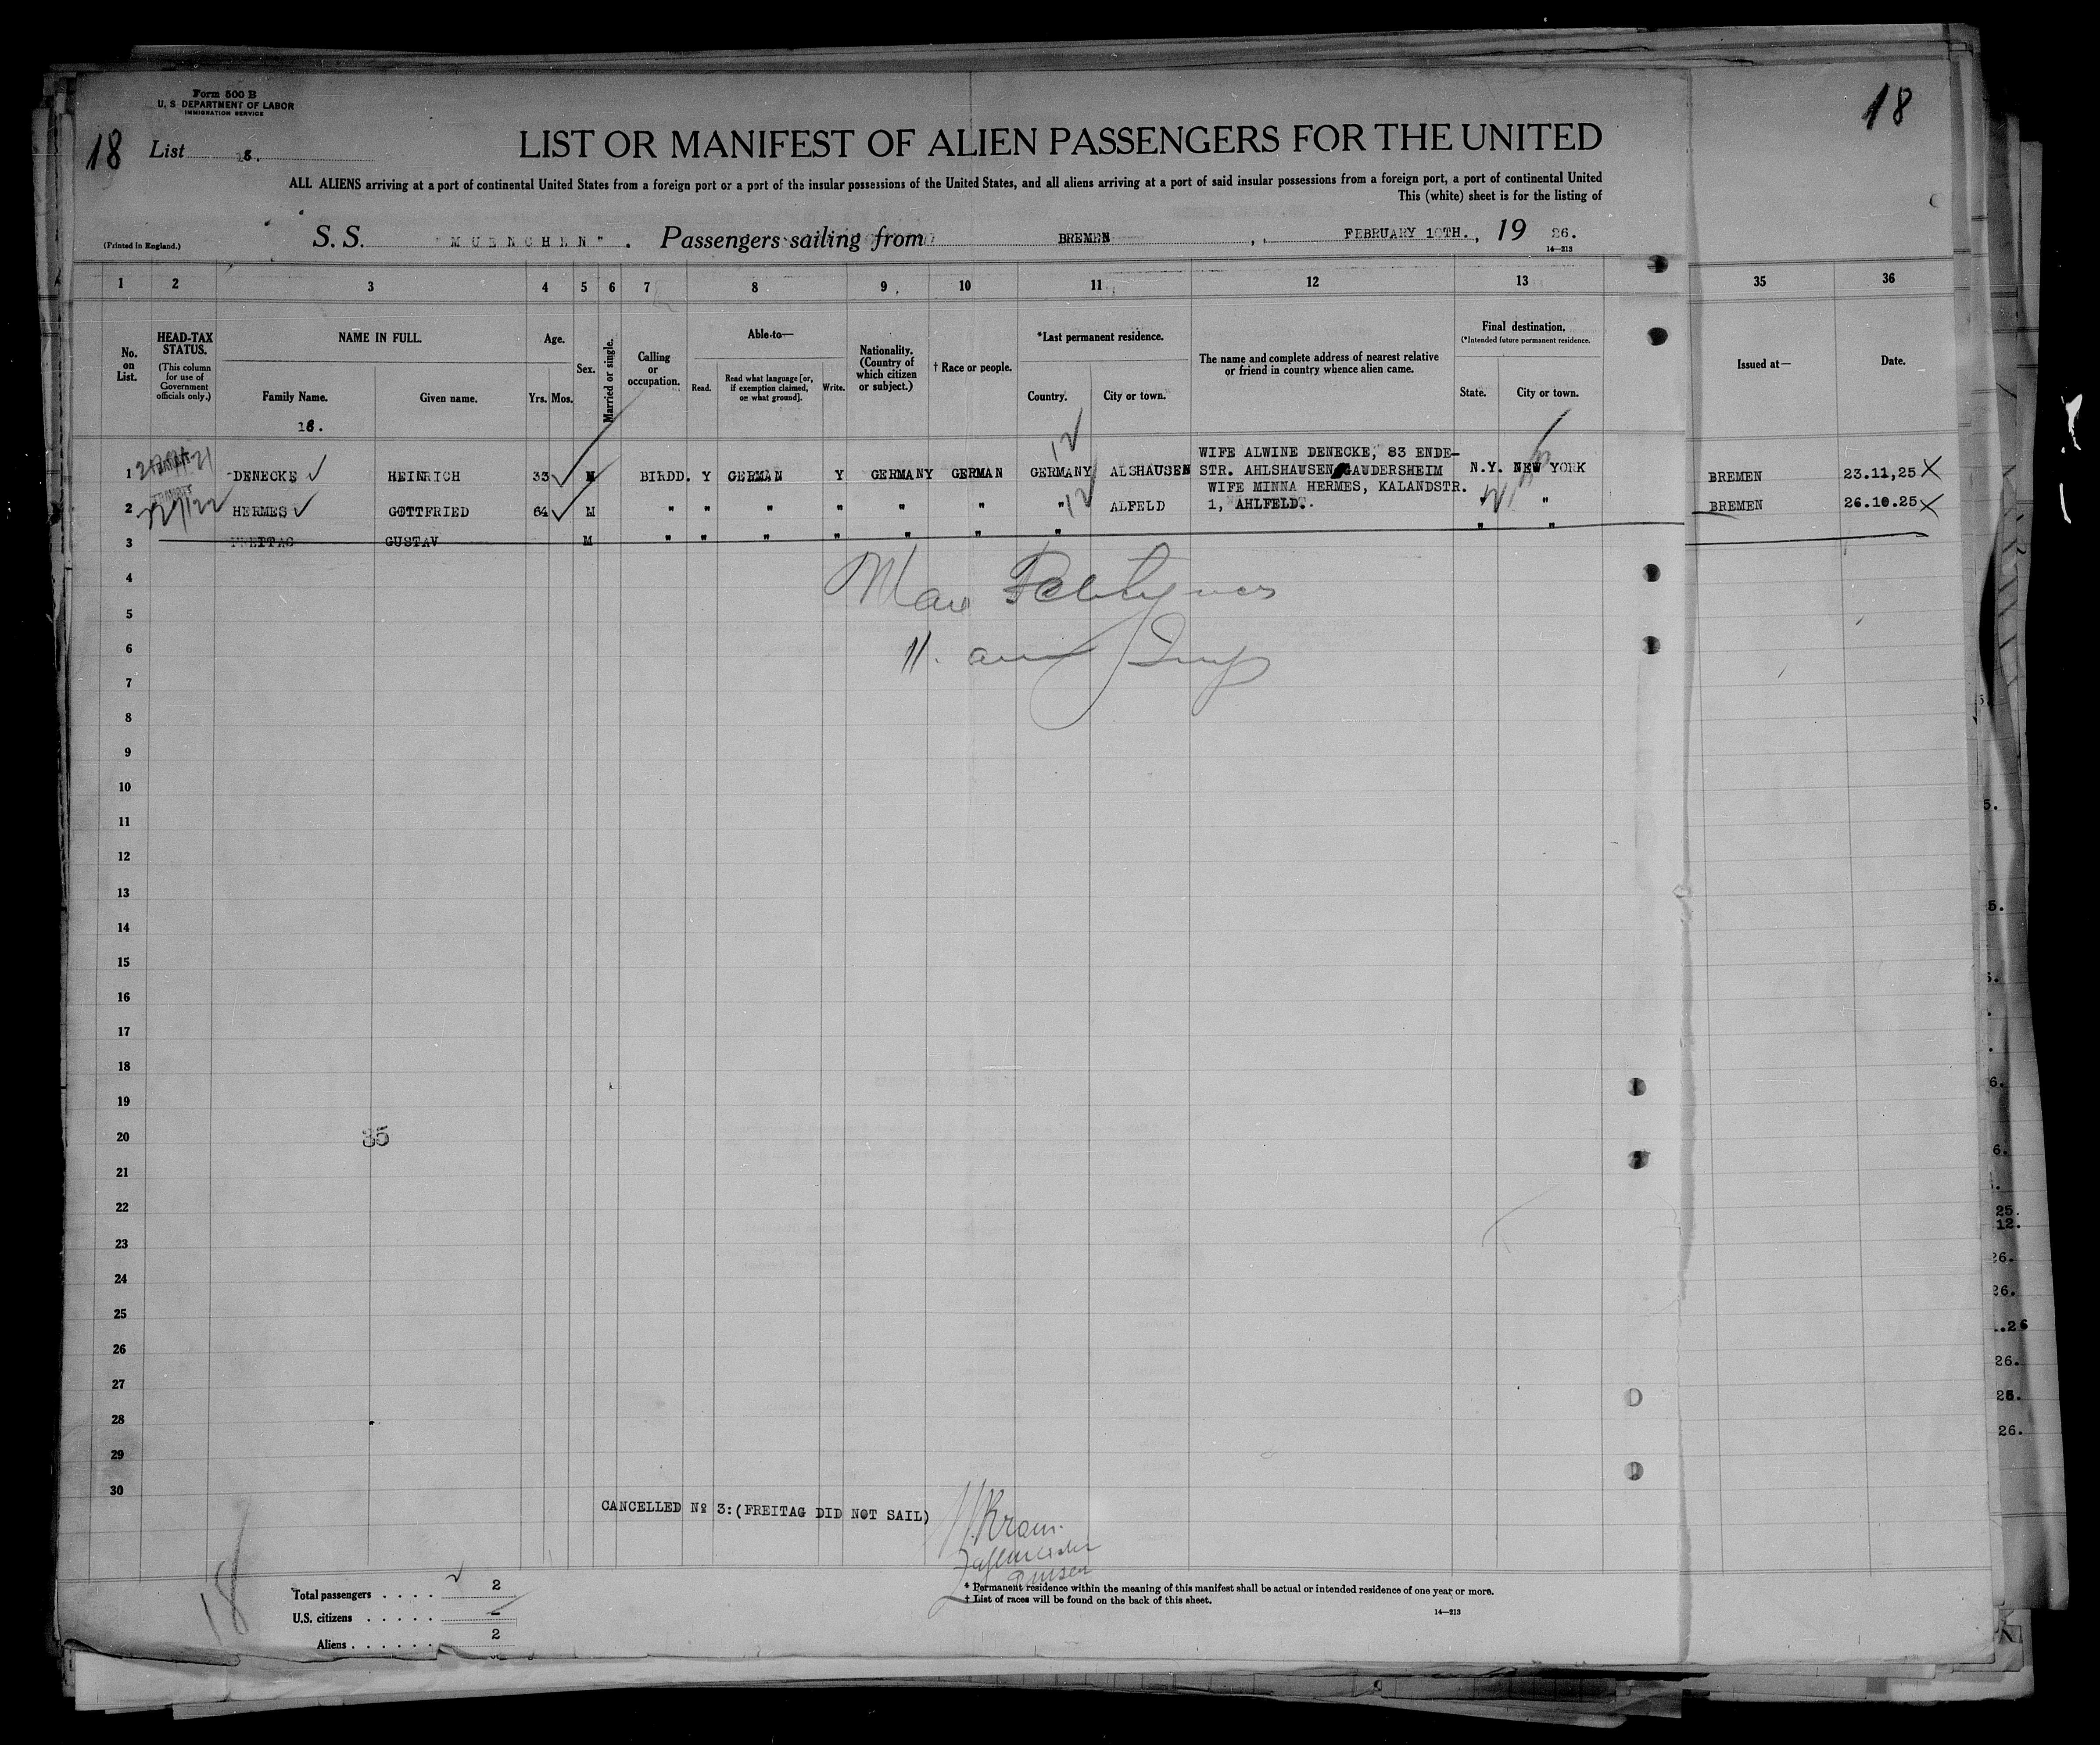 Form 500 B
U. S DEPARTMENT OF LABOR
IMMIGRATION SERVICE
18
18 List 18.
LIST OR MANIFEST OF ALIEN PASSENGERS FOR THE UNITED
ALL ALIENS arriving at a port of continental United States from a foreign port or a port of the insular possessions of the United States, and all aliens arriving at a port of said insular possessions from a foreign port, a port of continental United
This (white) sheet is for the listing of
(Printed in England.) S. S. "MUENCHEN". Passengers sailing from BREMEN, FEBRUARY 10TH., 19 26.
14—213
1 2 3 4 5 6 7 8 9 10 11 12 13 35 36
No. on List.
HEAD-TAX STATUS.
(This column for use of Government officials only.)
NAME IN FULL.
Family Name.
Given name.
Age.
Yrs. Mos.
Sex.
Married or single.
Calling or occupation.
Able to—
Read.
Read what language [or, if exemption claimed, on what ground].
Write.
Nationality. (Country of which citizen or subject.)
† Race or people.
*Last permanent residence.
Country.
City or town.
The name and complete address of nearest relative or friend in country whence alien came.
Final destination.
(*Intended future permanent residence.
State.
City or town.
Issued at—
Date.
18.
12
WIFE ALWINE DENECKE, 83 ENDE-
1 DENECKE HEINRICH 33 M BIRDD. Y GERMAN Y GERMANY GERMAN GERMANY ALSHAUSEN STR. AHLSHAUSEN GAUDERSHEIM N.Y. NEW YORK BREMEN 23.11,25
WIFE MINNA HERMES, KALANDSTR.
2 HERMES GOTTFRIED 64 M " " " " " " " 12 ALFELD 1, AHLFELD. " " BREMEN 26.10.25
3 FREITAG GUSTAV M " " " " " " " " "
4
5
6
7
8
9
10
11
12
13
14
15
16
17
18
19
20 35
21
22
23
24
25
26
27
28
29
30
CANCELLED Nº 3:(FREITAG DID NOT SAIL)
18
Total passengers . . . . 2
U.S. citizens . . . . . –
Aliens . . . . . . 2
* Permanent residence within the meaning of this manifest shall be actual or intended residence of one year or more.
† List of races will be found on the back of this sheet.
14—213
5.
5.
6.
6.
25.
12.
26.
26.
.26
26.
26.
26.